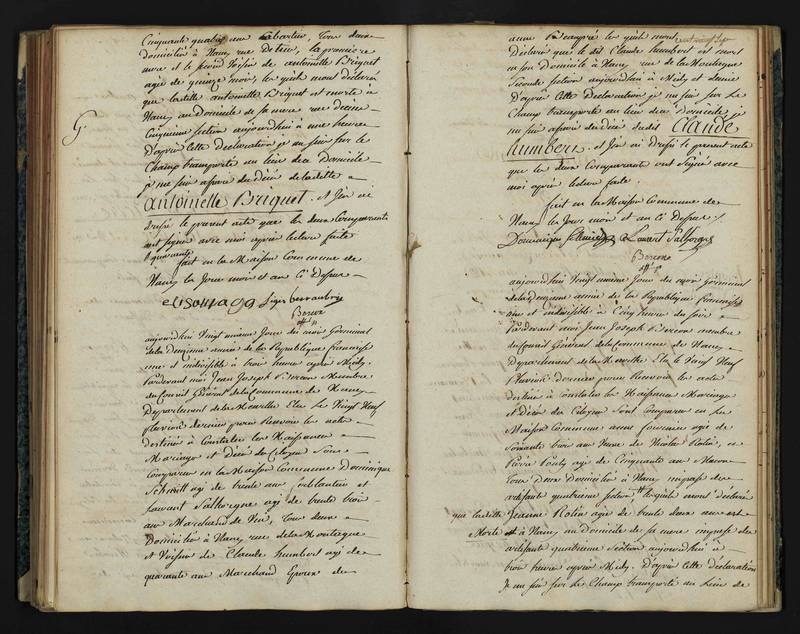 Cinquante quatre ans Cabartier, tous deux
Domiciliés à Nancy rue
mere et le second Voisin de antoinette Briquet
agée de quinze mois, les quels m'ont déclaré
que ladite antoinette Briquet est morte à
Nancy au Domicile de sa mere rue
Cinquieme section aujourdhui à une heure
D'après cette Declaration je me suis sur le
Champ transporté au lieu de ce Domicile
je me suis assuré du Décès de ladite
antoinette Briquet. et J'en ai
Dressé le present acte que les deux Comparants
ont signé avec moi après lecture faite
fait en la Maison Commune de
Nancy les Jour mois et an Ci Dessus
G.
elisauvage
aujourdhui Vingt unieme Jour du mois Germinal
de la Deuxieme année de la Republique française
une et indivisible à trois heures après Midy.
Pardevant moi Jean Joseph Membre
du Conseil Général de la Commune de Nancy
Département de la Meurthe Elu le Vingt Neuf
pluviose dernier pour Recevoir les actes
destinés à Constater les Naissances
Mariages et Décès des Citoyens Sont
Comparus en la Maison Commune Dominique
Schmitt agé de trente ans ferblantier et
Laurant Salhorgne agé de trente trois
ans Marchand de Vin, tous deux
Domiciliés à Nancy rue de la Montagne
et Voisins de Claude humbert agé de
quarante ans Marchand Epoux de
anne les quels m'ont
Déclaré que le dit Claude humbert est mort
en son Domicile à Nancy rue de la Montagne
Seconde section aujourdhui à Midy et demie
D'après Cette Declaration je me suis sur le
Champ transporté au lieu de ce Domicile, je
me suis assuré du Décès dudit Claude
humbert. et J'en ai Dressé le present acte
que les deux Comparants ont Signé avec
moi après lecture faite.
fait en la Maison Commune de
Nancy les Jour mois et an Ci Dessus
Dominique Schmitt Laurent Salhorgne
aujourdhui Vingt unieme Jour du mois Germinal
de la Deuxieme année de la Republique française
une et indivisible à Cinq heures du soir
Pardevant moi Jean Joseph membre
du Conseil Général de la Commune de Nancy
Département de la Meurthe Elu le Vingt Neuf
Pluviose Dernier pour Recevoir les actes
destinés à Constater les Naissances Mariages
et Décès des Citoyens Sont Comparus en la
Maison Commune anne agée de
Soixante trois ans Veuve de Nicolas Rolin, et
Pierre agé de Cinquante ans Macon
tous Deux Domiciliés à Nancy impasse des
artisants quatrieme section, les quels m'ont déclaré
que ladite Jeanne Rolin agée de trente deux ans est
Morte à Nancy au Domicile de sa mere impasse des
artisants quatrieme Section aujourdhui à
trois heures après Midy. D'après cette déclaration
Je me suis sur le Champ transporté au Lieu de